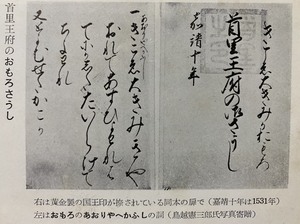 首里王府のおもろさうし
きこゑ大きみかおもろ
首里王府の御さうし
嘉靖十年
あおりやへかふし
一きこゑ大きみきや
おれてあすひよわれは
てにかした
たいらけて
ちよわれ
又とよむせたかこか
右は黄金製の国王印が捺されている詞本の扉で(嘉靖十年は1531年)
左はおもろのあおりやへかふしの詞(鳥越憲三郎氏写真寄贈)